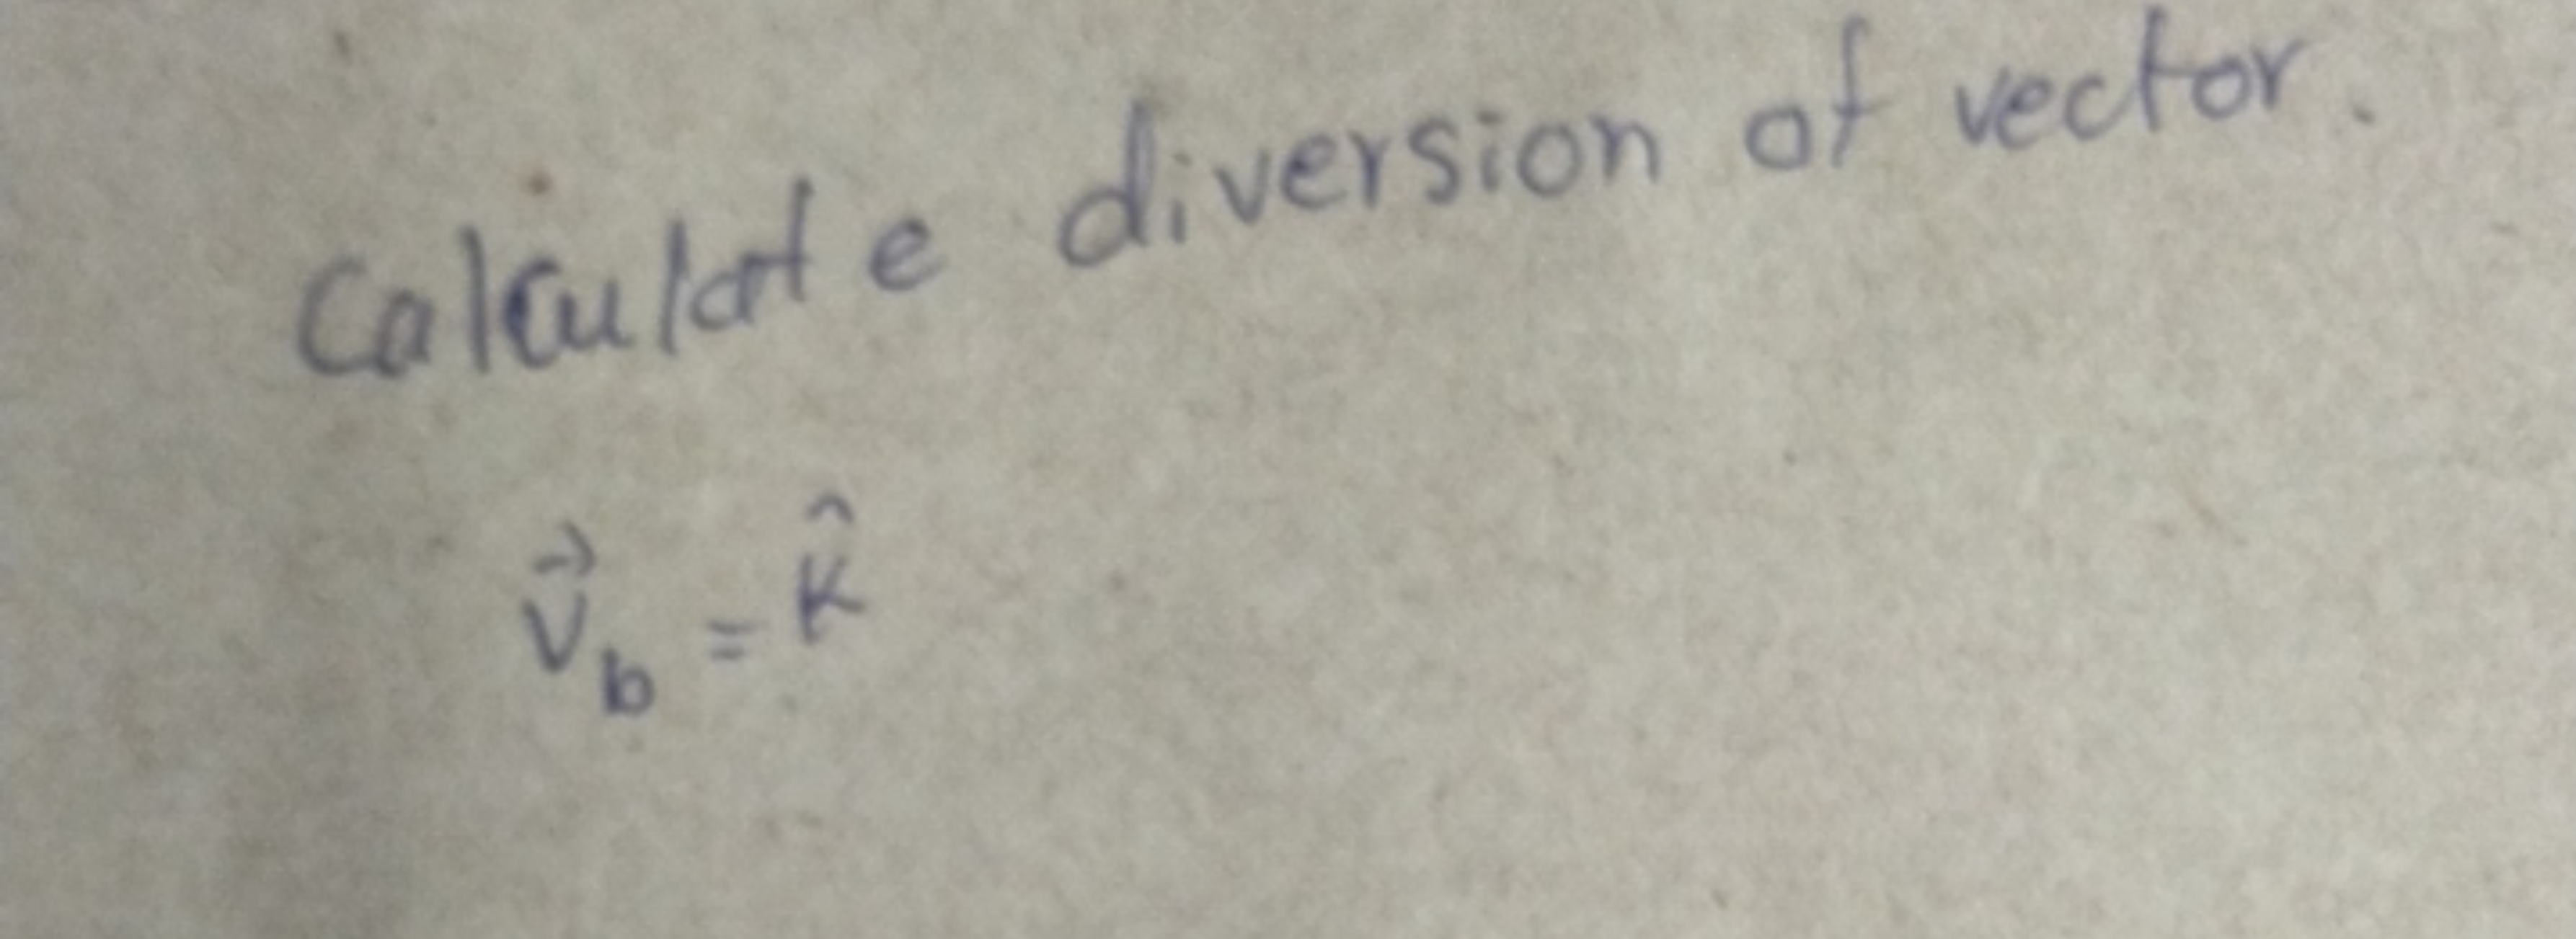 Calculate diversion of vector.
$\vec{V}_b = \hat{K}$